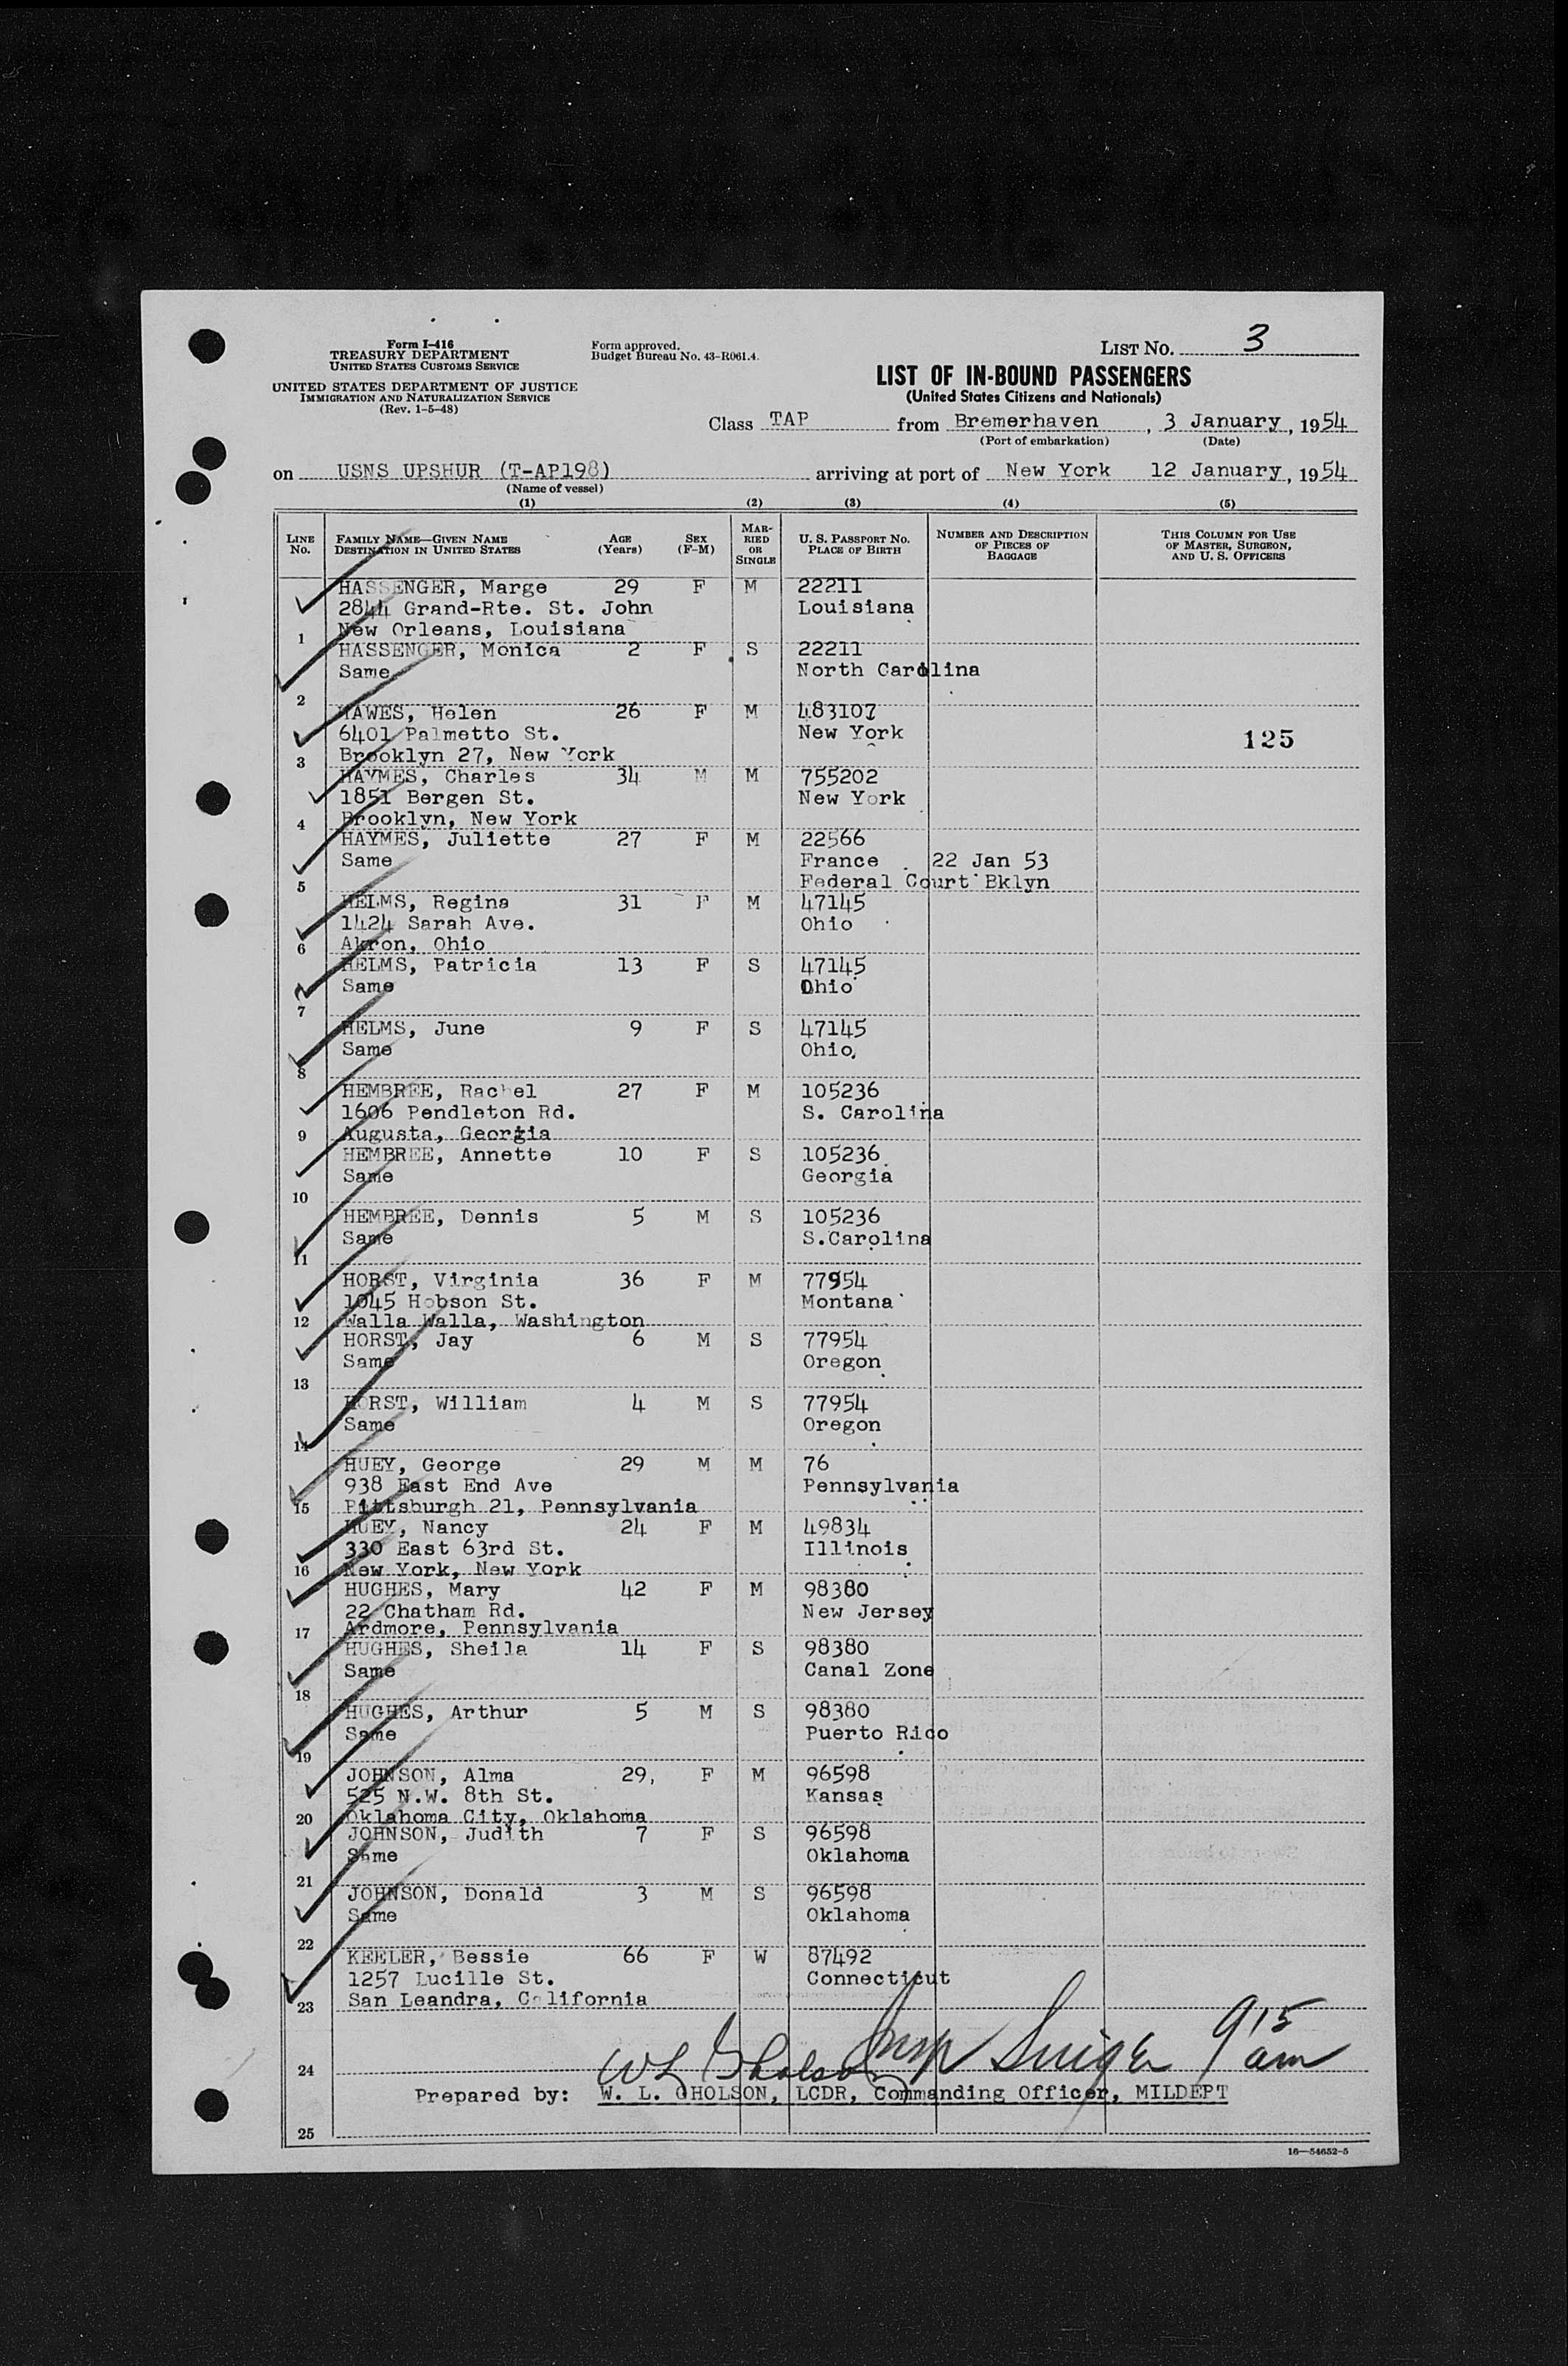 Form I-416
TREASURY DEPARTMENT
UNITED STATES CUSTOMS SERVICE
UNITED STATES DEPARTMENT OF JUSTICE
IMMIGRATION AND NATURALIZATION SERVICE
(Rev. 1-5-48)
Form approved.
Budget Bureau No. 43-R061.4.
LIST NO. 3
LIST OF IN-BOUND PASSENGERS
(United States Citizens and Nationals)
Class TAP from Bremerhaven, 3 January, 1954
(Port of embarkation) (Date)
on USNS UPSHUR (T-AP198) arriving at port of New York 12 January, 1954
(Name of vessel)
(1) (2) (3) (4) (5)
LINE NO. FAMILY NAME—GIVEN NAME DESTINATION IN UNITED STATES AGE (Years) SEX (F-M) MARRIED OR SINGLE U. S. PASSPORT NO. PLACE OF BIRTH NUMBER AND DESCRIPTION OF PIECES OF BAGGAGE THIS COLUMN FOR USE OF MASTER, SURGEON, AND U. S. OFFICERS
HASSENGER, Marge 29 F M 22211
2844 Grand-Rte. St. John Louisiana
1 New Orleans, Louisiana
HASSENGER, Monica 2 F S 22211
Same North Carolina
2
HAWES, Helen 26 F M 483107
6401 Palmetto St. New York 125
3 Brooklyn 27, New York
HAYMES, Charles 34 M M 755202
1851 Bergen St. New York
4 Brooklyn, New York
HAYMES, Juliette 27 F M 22566
Same France 22 Jan 53
5 Federal Court Bklyn
HELMS, Regina 31 F M 47145
1424 Sarah Ave. Ohio
6 Akron, Ohio
HELMS, Patricia 13 F S 47145
Same Ohio
7
HELMS, June 9 F S 47145
Same Ohio
8
HEMBREE, Rachel 27 F M 105236
1606 Pendleton Rd. S. Carolina
9 Augusta, Georgia
HEMBREE, Annette 10 F S 105236
Same Georgia
10
HEMBREE, Dennis 5 M S 105236
Same S.Carolina
11
HORST, Virginia 36 F M 77954
1045 Hobson St. Montana
12 Walla Walla, Washington
HORST, Jay 6 M S 77954
Same Oregon
13
HORST, William 4 M S 77954
Same Oregon
14
HUEY, George 29 M M 76
938 East End Ave Pennsylvania
15 Pittsburgh 21, Pennsylvania
HUEY, Nancy 24 F M 49834
330 East 63rd St. Illinois
16 New York, New York
HUGHES, Mary 42 F M 98380
22 Chatham Rd. New Jersey
17 Ardmore, Pennsylvania
HUGHES, Sheila 14 F S 98380
Same Canal Zone
18
HUGHES, Arthur 5 M S 98380
Same Puerto Rico
19
JOHNSON, Alma 29, F M 96598
525 N.W. 8th St. Kansas
20 Oklahoma City, Oklahoma
JOHNSON, Judith 7 F S 96598
Same Oklahoma
21
JOHNSON, Donald 3 M S 96598
Same Oklahoma
22
KEELER, Bessie 66 F W 87492
1257 Lucille St. Connecticut
23 San Leandra, California
WL Gholson Insp 915 am
24
Prepared by: W. L. GHOLSON, LCDR, Commanding Officer, MILDEPT
25
16—54652-5